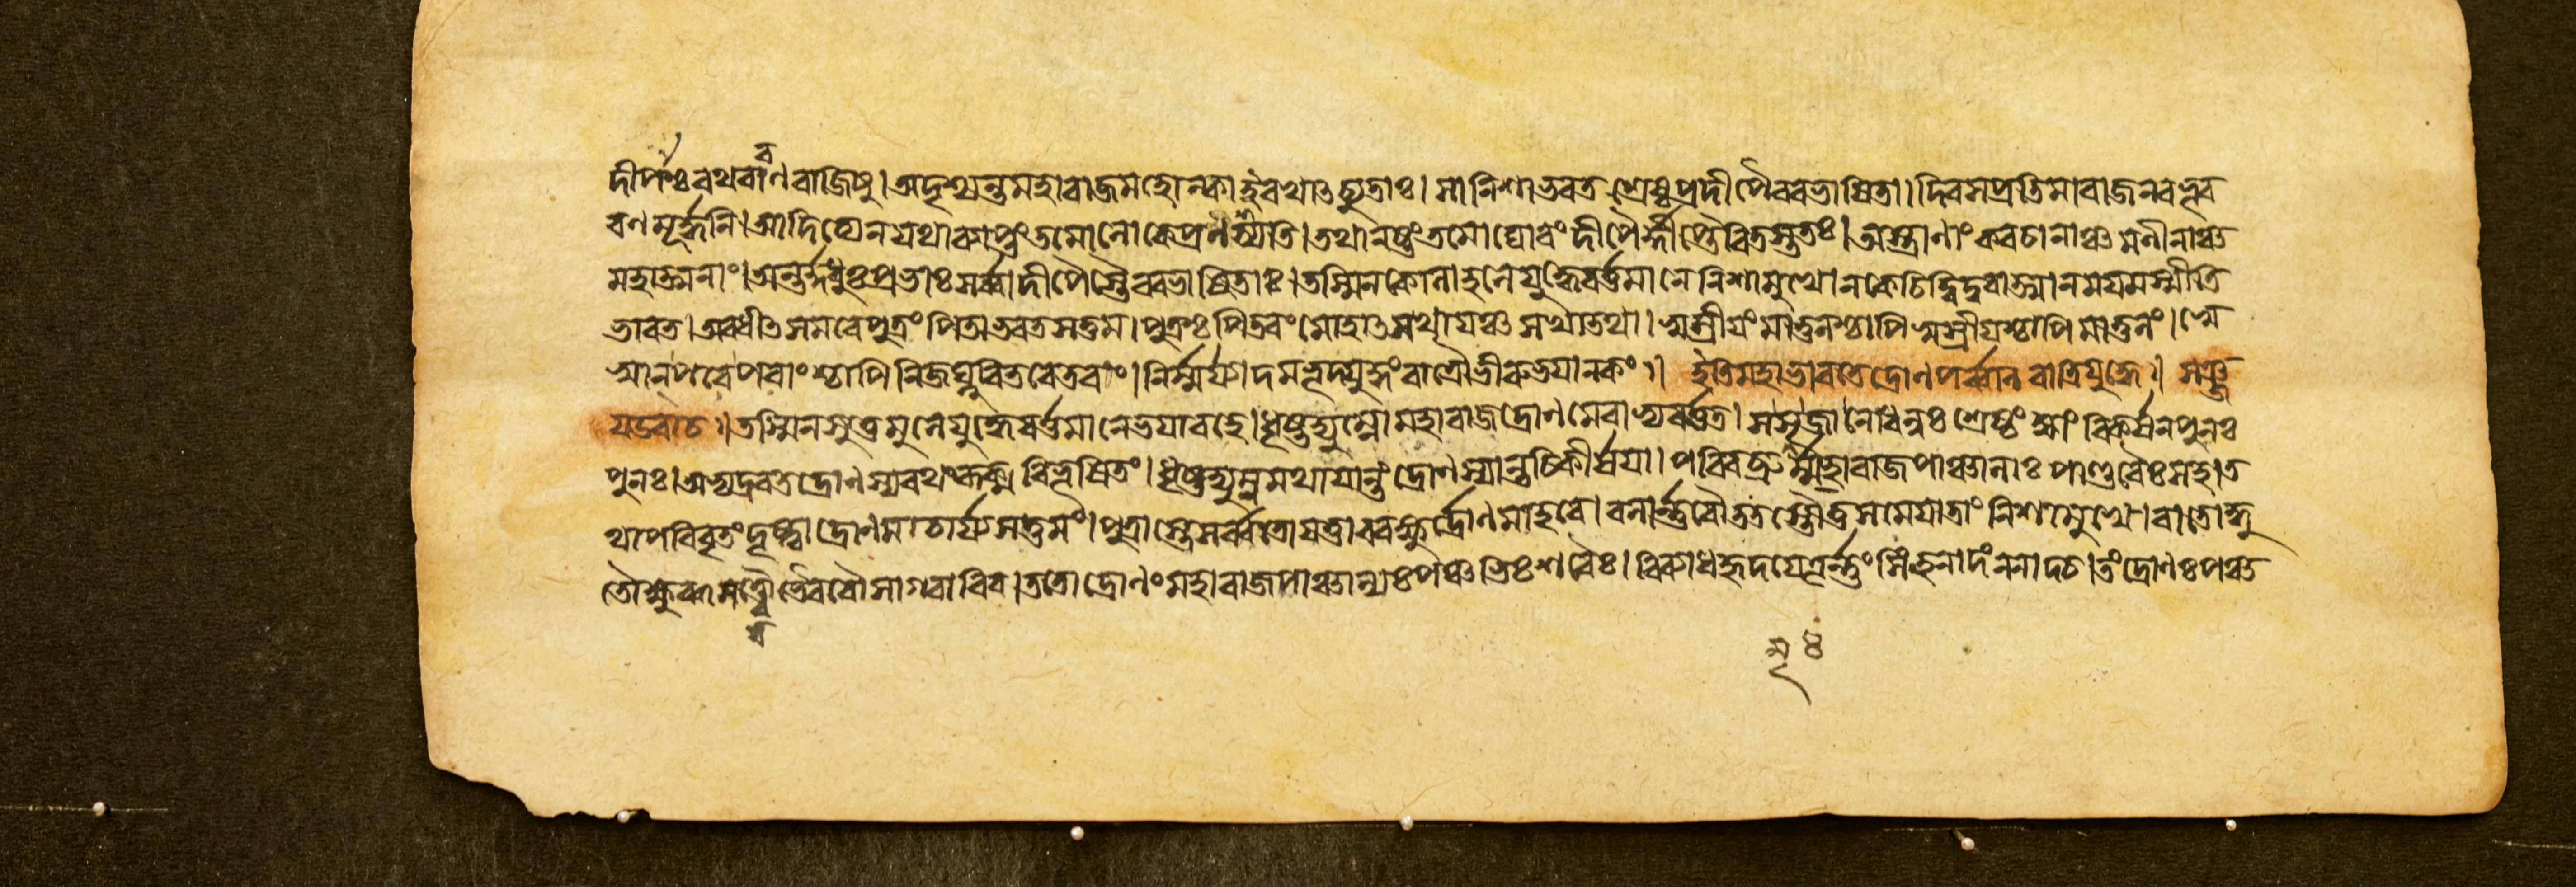 দীপাঃ রথবরণবাজিষু। অদৃশ্যন্ত মহারাজ মহোল্কা ইব খাৎ চ্যুতাঃ। সা নিশা ভরতশ্রেষ্ঠ প্রদীপৈরবভাষিতা। দিবসপ্রতিমা রাজন বভূব
রণমূর্দ্ধনি। আদিত্যেন যথা ব্যাপ্তং তমো লোকে প্রণশ্যতি। তথা নষ্টং তমো ঘোরং দীপৈর্দ্দীপ্তৈরিতস্ততঃ। অস্ত্রাণাং কবচানাঞ্চ মণীনাঞ্চ
মহাত্মনাং। অন্তর্দ্দধুঃ প্রভাঃ সর্ব্বা দীপৈস্তৈরবভাষিতাঃ। তস্মিন কোলাহলে যুদ্ধে বর্ত্তমানে নিশামুখে। ন কেচিদ্বিদুরাত্মানময়মস্মীতি
ভারত। অবধীৎ সমরে পুত্রং পিতা ভরতসত্তম। পুত্রঃ পিতরং মোহাৎ সখায়ঞ্চ সখা তথা। স্বস্রীয়ং মাতুলশ্চাপি স্বস্রীয়শ্চাপি মাতুলং। স্বে
স্বান্ পরে পরাংশ্চাপি নিজঘ্নুরিতরেতরং। নির্ম্মর্য্যাদমভূদ্যুদ্ধং রাত্রৌ ভীরুভয়ানকং॥ ইতি মহাভারতে দ্রোণপর্ব্বণি রাত্রিযুদ্ধে॥ সঞ্জ
য় উবাচ॥ তস্মিন সুতুমুলে যুদ্ধে বর্ত্তমানে ভয়াবহে। ধৃষ্টদ্যুম্নো মহারাজ দ্রোণমেবাভ্যবর্ত্তত। শ্রেষ্ঠং জ্যাং বিকর্ষন পুনঃ
পুনঃ। অভ্যদ্রবত দ্রোণস্য রথং রুক্মবিভূষিতং। ধৃষ্টদ্যুম্নমথায়ান্তং দ্রোণস্যান্তচিকীর্ষয়া। পরিবব্রুর্ম্মহারাজ পাঞ্চালাঃ পাণ্ডবৈঃ সহ। ত
থা পরিবৃতং দৃষ্ট্বা দ্রোণমাচার্য্যসত্তমং। পুত্রাস্তে সর্ব্বতো যত্তা ররক্ষুর্দ্রোণমাহবে। বলার্ণবৌ ততস্তৌ তু সমেয়াতাং নিশামুখে। বাতোদ্ধূ
তৌ ক্ষুব্ধসত্ত্বৌ ভৈরবৌ সাগরাবিব। ততো দ্রোণং মহারাজ পাঞ্চাল্যঃ পঞ্চভিঃ শরৈঃ। বিব্যাধ হৃদয়ে তূর্ণং সিংহনাদং ননাদ চ। তং দ্রোণঃ পঞ্চ